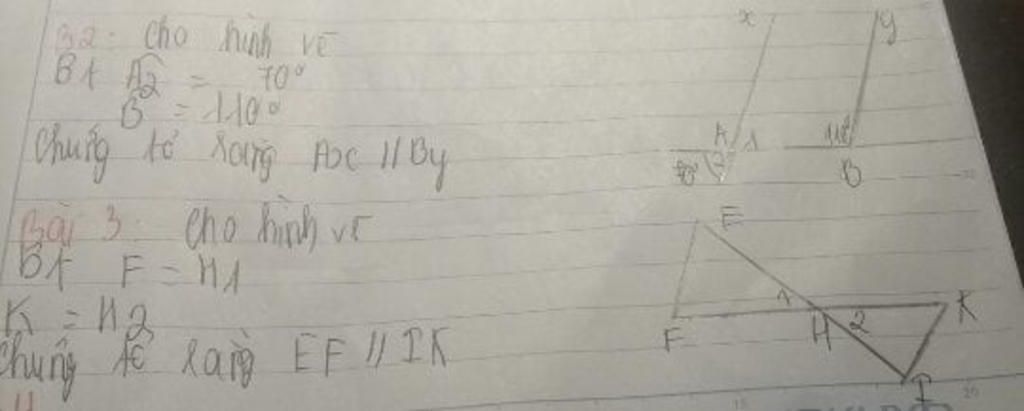 B2: Cho hình vẽ
BT Â2 = 70°
B̂ = 110°
Chứng tỏ rằng Ax // By
x y
A 1 110°
70° 2 B
Bài 3: Cho hình vẽ
BT F = H1
K = H2
Chứng tỏ rằng EF // IK
E
1 K
F H 2
I
15 20